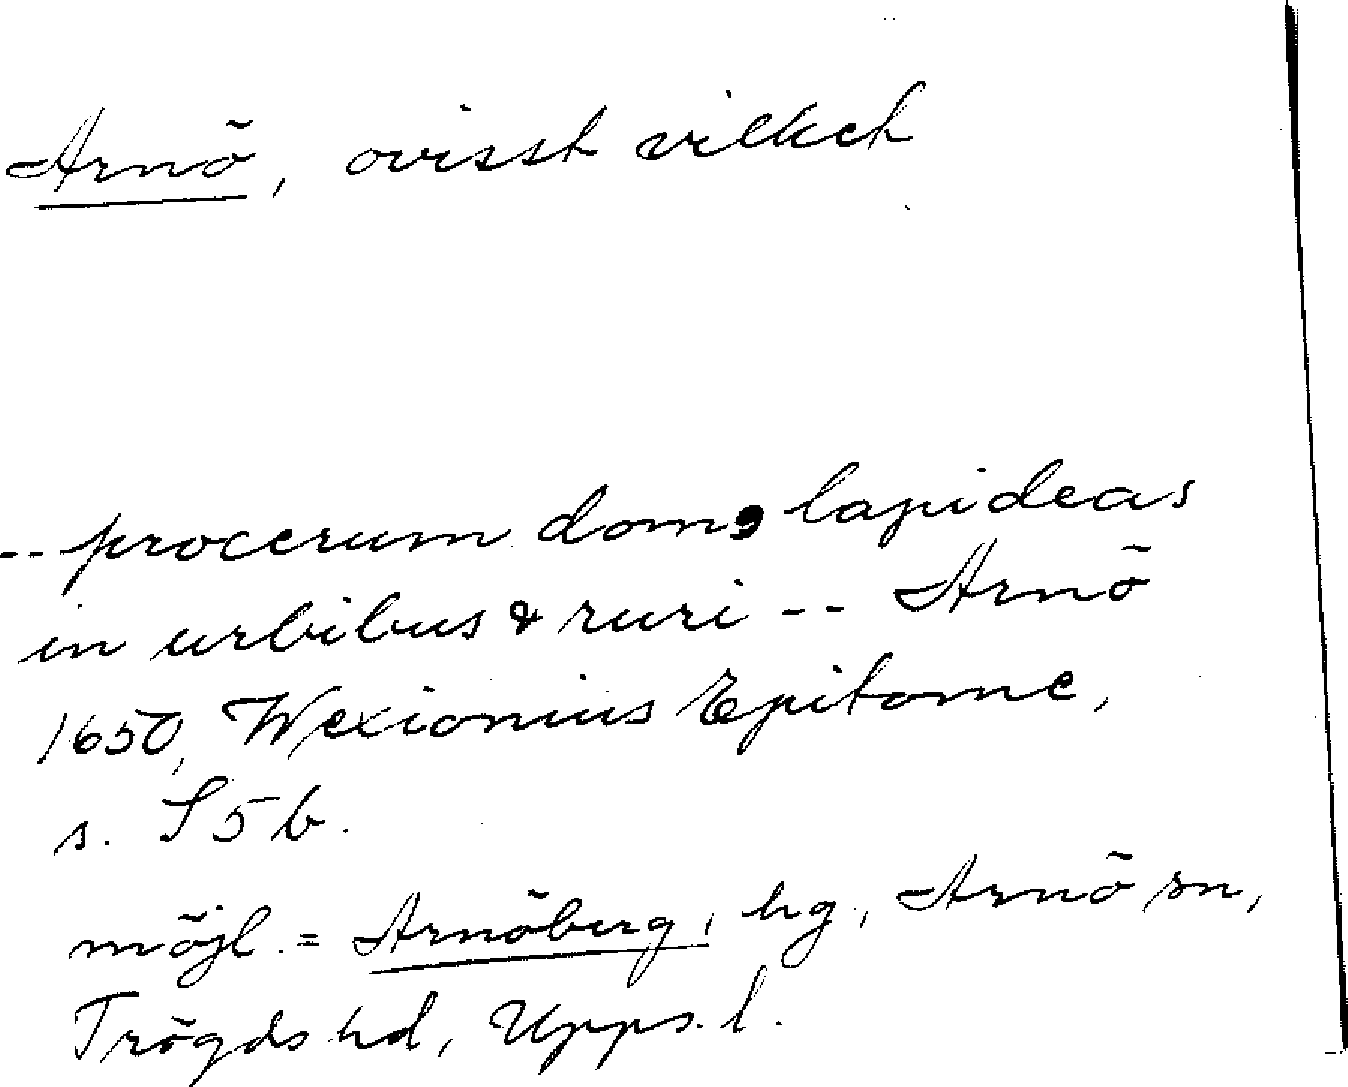 Arnö, ovisst vilket
-- procerum domo lapideas
in urbibus & ruri -- Arnö
1650, Wexionius Epitome,
s. S5b.
möjl. = Arnöberg, hg, Arnö sn,
Trögds hd, Upps. l.